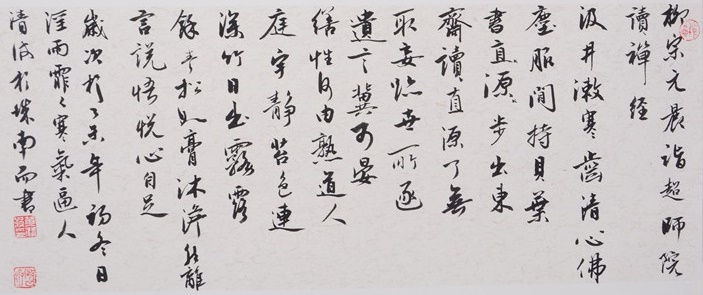 柳宗元晨詣超師院
讀禪經
汲井漱寒齒清心佛
塵服閒持貝葉
書真源步出東
齋讀真源了無
取妄跡世所逐
遺言冀可冥
繕性何由熟道人
庭宇靜苔色連
深竹日出霧露
餘青松如膏沐澹然離
言說悟悅心自足
歲次於丁未年初冬日
淫雨霏々寒氣逼人
清於珠南而書